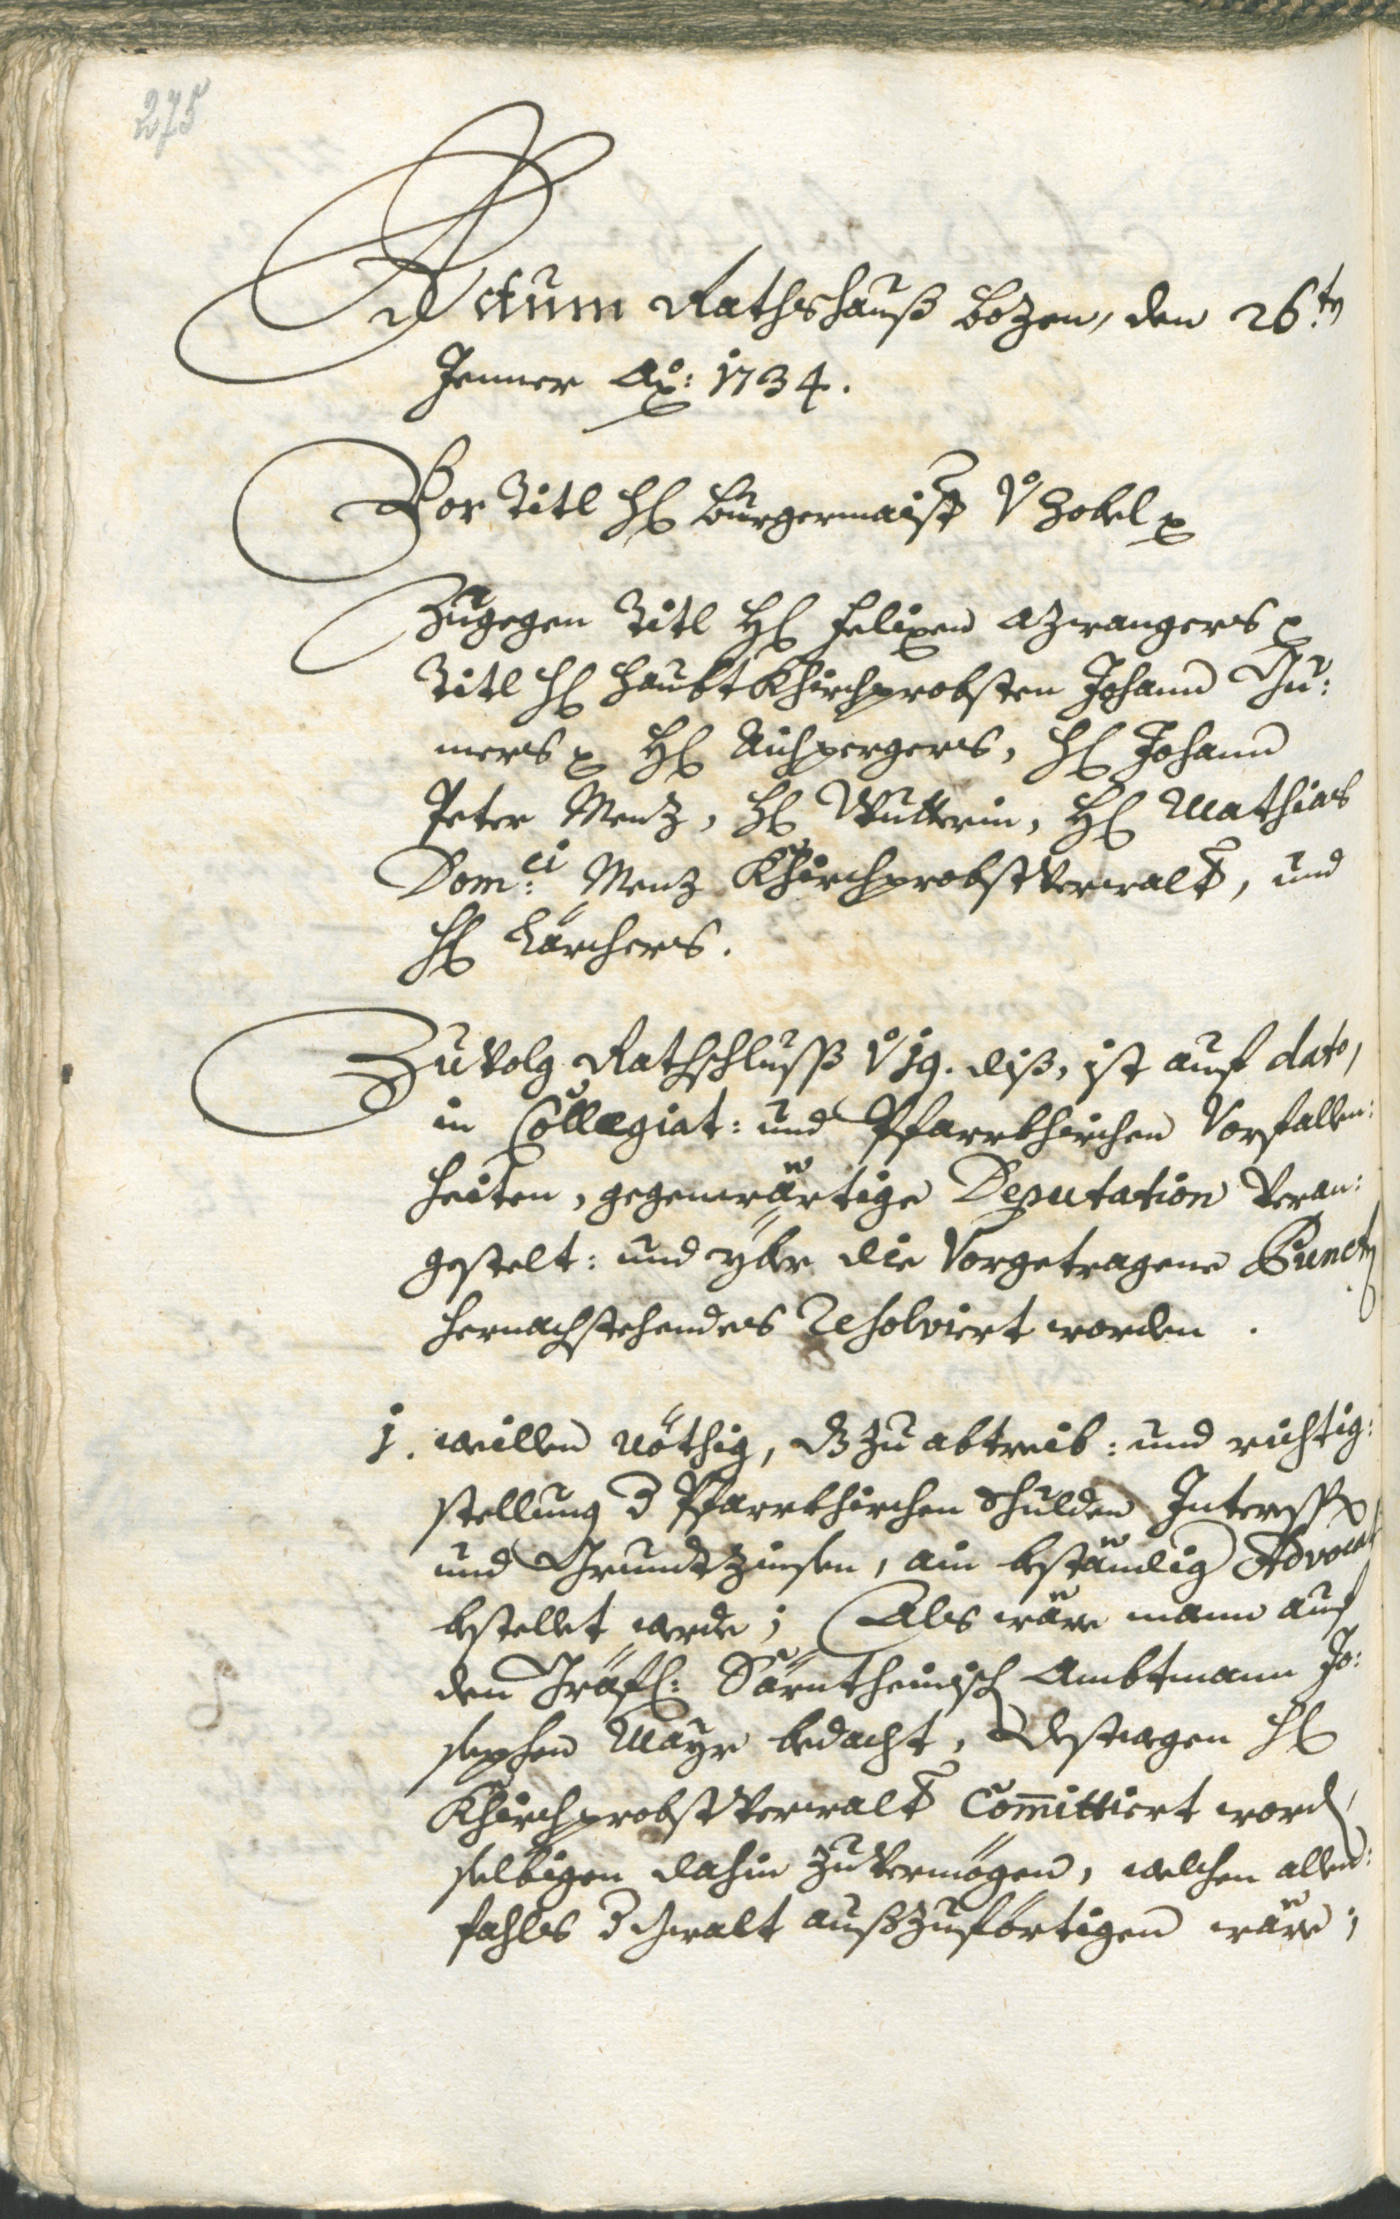 275
Actum Rathshauß Bozen, den 26.ten
Jenner Ao: 1734.
Vor Titl H: Burgermaister v Zobel
Zugegen Titl H: Felixen Azwangers
Titl H: Haubt Khirchprobsten Johann Gu:
mers H: Aichpergers, H: Johann
Peter Menz, H: Mathias
Dom:ci Menz Khirchprobstverwalter, und
H: Lärchers.
Zuvolg Rathschlusß v 19. diß, ist auf dato,
in Collegiat: und Pfarrkhirchen Vorfallen:
heiten, gegenwärtige Deputation veran:
gestelt: und yber die Vorgetragene Puncten
hernachstehendes Resolviert worden.
1. weillen nöthig, dz zu abtreib: und richtig:
stellung d Pfarrkhirchen Schulden Interesse
und Grundtzinsen, ain beständig Advocat
bestellet werde; Als wäre mann auf
den Gräfl: Särntheinisch Ambtmann Jo:
sephen Mayr bedacht, desswegen H:
Khirchprobstverwalter Committiert worden,
selbigen dahin zuvermögen, welchen allen:
fahls d Gwalt außzuförtigen wäre;